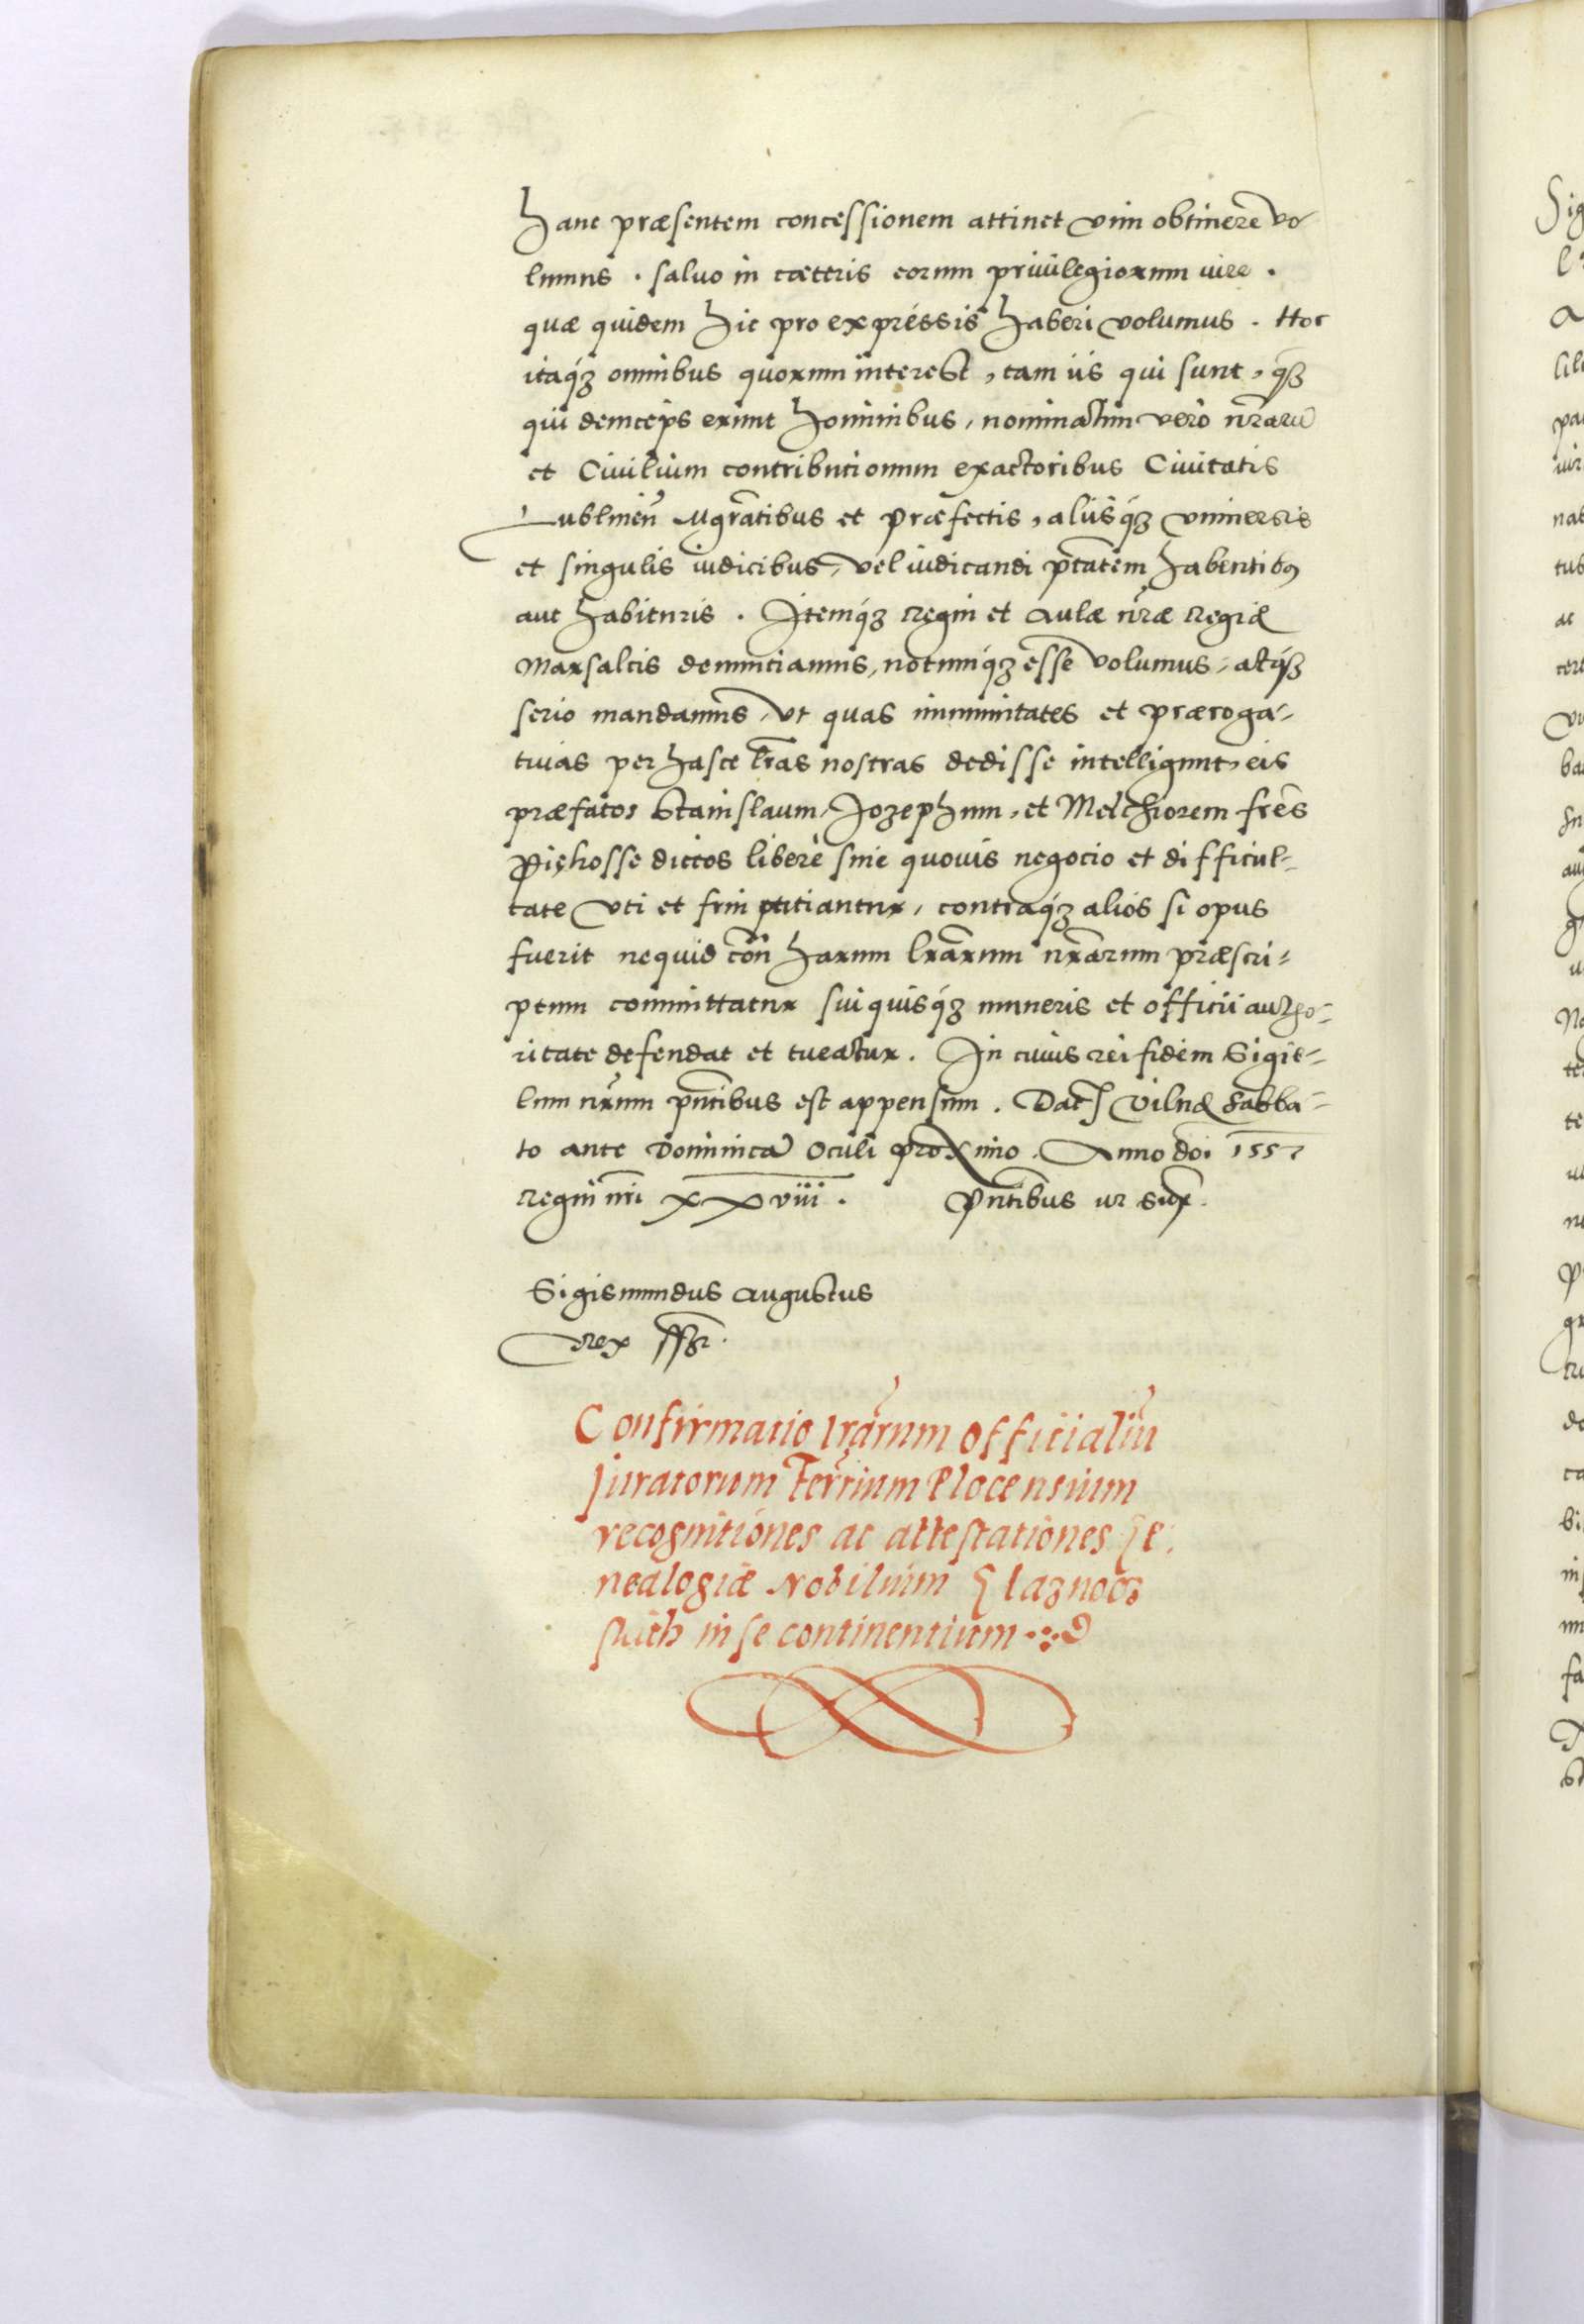 hanc præsentem concessionem attinet vim obtinere vo-
lumus . salvo in cæteris eorum privilegiorum iure .
quæ quidem hic pro expressis haberi volumus . Hoc
itaq́ꝫ omnibus quorum interest, tam iis qui sunt, qꝫ
qui deinceps erunt hominibus, nominatim vero nr̃arũ
et Civilium contributionum exactoribus Civitatis
Lublineñ Mgr̃atibus et præfectis, aliisq́ꝫ universis
et singulis iudicibus, vel iudicandi ptãtem habentibꝰ
aut habituris . Itemq́ꝫ regni et aulæ nr̃æ regiæ
Marsalcis denunciamus, notumq́ꝫ esse volumus, atq́ꝫ
serio mandamus, ut quas immunitates et præroga-
tivas per hasce lr̃as nostras dedisse intelligunt, eis
præfatos Stanislaum, Jozephum, et Melchiorem fres̃
Pięhosse dictos libere sine quovis negocio et difficul-
tate uti et frui patiantur, contraq́ꝫ alios si opus
fuerit nequid coñ harum lr̃arum nr̃arum præscri-
ptum committatur sui quisq́ꝫ muneris et officii autho-
ritate defendat et tueatur. In cuius rei fidem Sigil-
lum nr̃um pñtibus est appensum . Dat̃ Vilnæ Sabba-
to ante Dominicã Oculi proximo . Anno doi 1557
regni nri xxviii . Pñtibus ut sup̃ .
Sigismundus Augustus
rex sst̃.
Confirmatio lr̃arum officialiũ
juratorum Terr̃ium Plocensium
recognitiones ac attestationes Ge-
nealogiæ Nobilium Glaznoc3
skich in se continentium